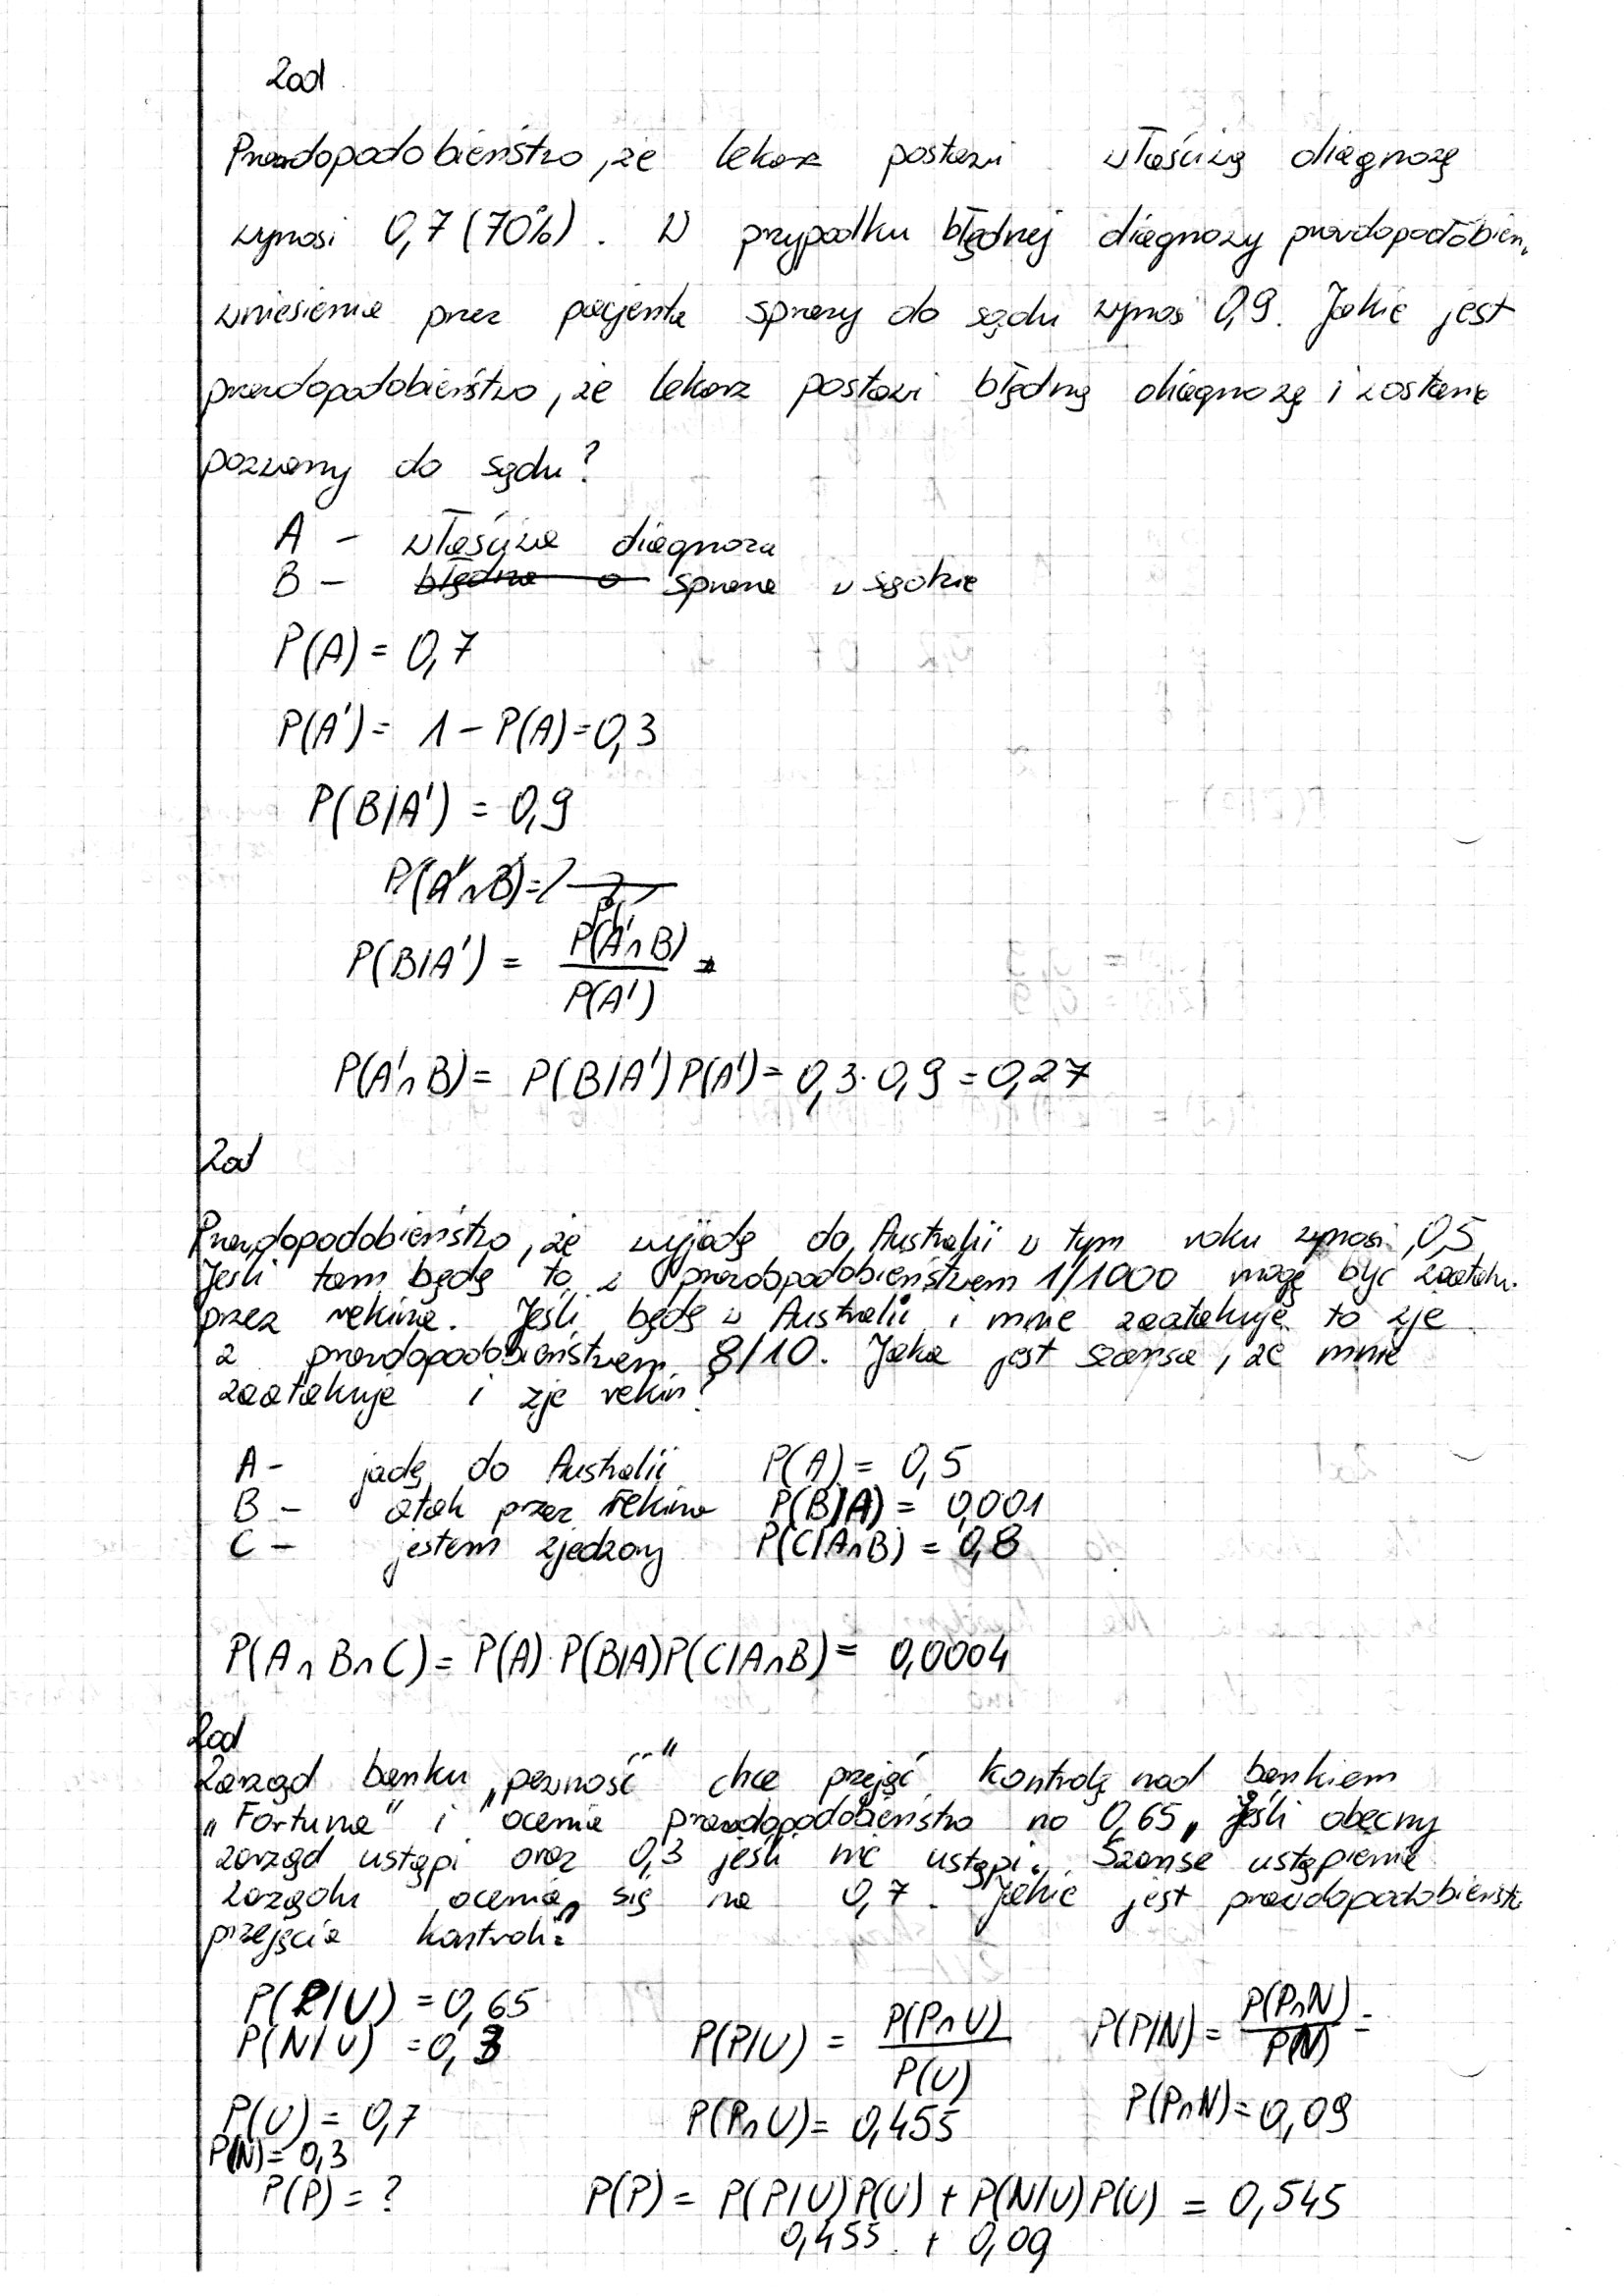 Zad
Prawdopodobieństwo, że lekarz postawi właściwą diagnozę
wynosi 0,7 (70%). W przypadku błędnej diagnozy prawdopodobień.
wniesienia przez pacjenta sprawy do sądu wynosi 0,9. Jakie jest
prawdopodobieństwo, że lekarz postawi błędną diagnozę i zostanie
pozwany do sądu?
A - właściwa diagnoza
B - sprawa w sądzie
P(A) = 0,7
P(A') = 1 - P(A) = 0,3
P(B/A') = 0,9
P(A'∩B) = ?
P(B/A') = P(A'∩B) / P(A')
P(A'∩B) = P(B/A') P(A') = 0,3 · 0,9 = 0,27
Zad
Prawdopodobieństwo, że wyjadę do Australii w tym roku wynosi 0,5
Jeśli tam będę to z prawdopodobieństwem 1/1000 mogę być zaatak.
przez rekina. Jeśli będę w Australii i mnie zaatakuje to zje
z prawdopodobieństwem 8/10. Jaka jest szansa, że mnie
zaatakuje i zje rekin?
A - jadę do Australii P(A) = 0,5
B - atak przez rekina P(B/A) = 0,001
C - jestem zjedzony P(C/A∩B) = 0,8
P(A∩B∩C) = P(A) · P(B/A) P(C/A∩B) = 0,0004
Zad
Zarząd banku „pewność" chce przejąć kontrolę nad bankiem
„Fortuna" i ocenia prawdopodobieństwo na 0,65, jeśli obecny
zarząd ustąpi oraz 0,3 jeśli nie ustąpi. Szanse ustąpienia
zarządu ocenia się na 0,7. Jakie jest prawdopodobieńst.
przejęcia kontroli?
P(P/U) = 0,65
P(N/U) = 0,3
P(P/U) = P(P∩U) / P(U) P(P/N) = P(P∩N) / P(N) =
P(U) = 0,7 P(P∩U) = 0,455 P(P∩N) = 0,09
P(N) = 0,3
P(P) = ? P(P) = P(P/U) P(U) + P(N/U) P(U) = 0,545
0,455 + 0,09